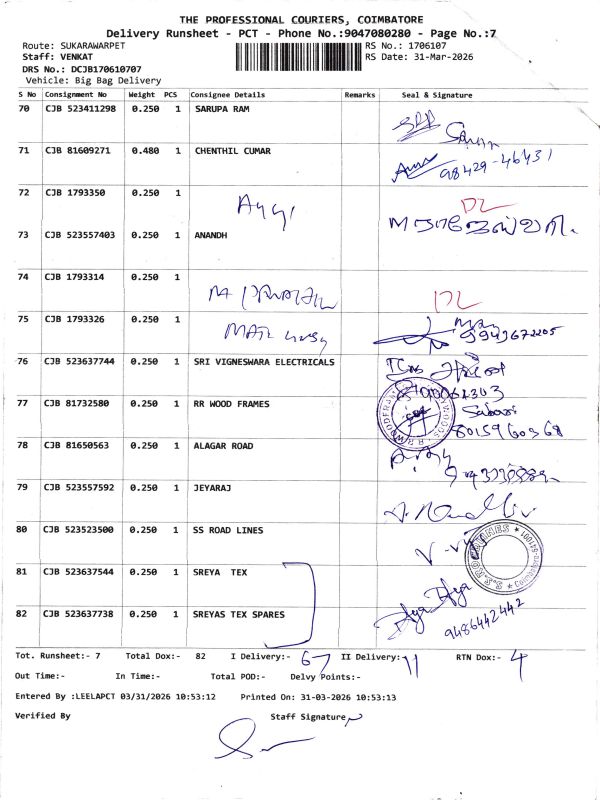 THE PROFESSIONAL COURIERS, COIMBATORE
Delivery Runsheet - PCT - Phone No.:9047080280 - Page No.:7
Route: SUKARAWARPET
RS No.: 1706107
Staff: VENKAT
RS Date: 31-Mar-2026
DRS No.: DCJB170610707
Vehicle: Big Bag Delivery
S No Consignment No Weight PCS Consignee Details Remarks Seal & Signature
70 CJB 523411298 0.250 1 SARUPA RAM
71 CJB 81609271 0.480 1 CHENTHIL CUMAR
98429-46431
72 CJB 1793350 0.250 1
DL
73 CJB 523557403 0.250 1 ANANDH
74 CJB 1793314 0.250 1
DL
75 CJB 1793326 0.250 1
9943672205
76 CJB 523637744 0.250 1 SRI VIGNESWARA ELECTRICALS
77 CJB 81732580 0.250 1 RR WOOD FRAMES
8015960368
78 CJB 81650563 0.250 1 ALAGAR ROAD
79 CJB 523557592 0.250 1 JEYARAJ
80 CJB 523523500 0.250 1 SS ROAD LINES
81 CJB 523637544 0.250 1 SREYA TEX
82 CJB 523637738 0.250 1 SREYAS TEX SPARES
9486442442
Tot. Runsheet:- 7 Total Dox:- 82 I Delivery:- 67 II Delivery:- 11 RTN Dox:- 4
Out Time:- In Time:- Total POD:- Delvy Points:-
Entered By :LEELAPCT 03/31/2026 10:53:12 Printed On: 31-03-2026 10:53:13
Verified By Staff Signature